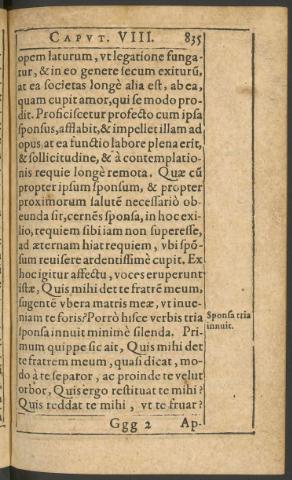 CAPVT. VIII. 835
opem laturum, vt legatione funga-
tur, & in eo genere secum exiturũ,
at ea societas longè alia est, ab ea,
quam cupit amor, qui se modo pro-
dit. Proficiscetur profecto cum ipsa
sponsus, afflabit, & impellet illam ad
opus, at ea functio labore plena erit,
& sollicitudine, & à contemplatio-
nis requie longè remota. Quæ cũ
propter ipsum sponsum, & propter
proximorum salutẽ necessariò ob-
eunda sit, cernẽs sponsa, in hoc exi-
lio, requiem sibi iam non superesse,
ad æternam hiat requiem, vbi spõ-
sum reuisere ardentissimè cupit. Ex
hoc igitur affectu, voces eruperunt
istæ, Quis mihi det te fratrẽ meum,
sugentẽ vbera matris meæ, vt inue-
niam te foris? Porrò hisce verbis tria
sponsa innuit minimè silenda. Pri-
mum quippe sic ait, Quis mihi det
te fratrem meum, quasi dicat, mo-
do à te separor, ac proinde te velut
orbor, Quis ergo restituat te mihi?
Quis reddat te mihi, vt te fruar?
Sponsa tria
innuit.
Ggg 2 Ap-